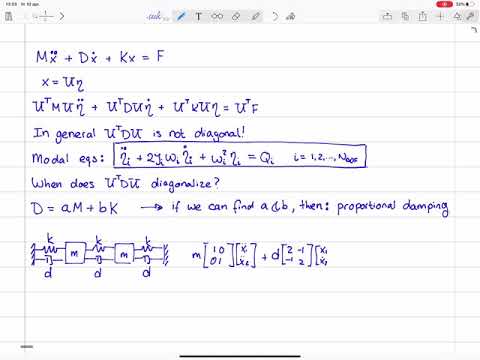 15:05 Fri 10 apr. 52%
Mẍ + Dẋ + Kx = F
x = Uη
UᵀMUη̈ + UᵀDUη̇ + UᵀKUη = UᵀF
In general UᵀDU is not diagonal!
Modal eqs: η̈ᵢ + 2ζᵢωᵢη̇ᵢ + ωᵢ²ηᵢ = Qᵢ i=1,2,..., N_DOF
When does UᵀDU diagonalize?
D = aM + bK → if we can find a & b, then: proportional damping
k k k
m m
d d d
m [1 0; 0 1] [ẍ₁; ẍ₂] + d [2 -1; -1 2] [ẋ₁; ẋ₂]